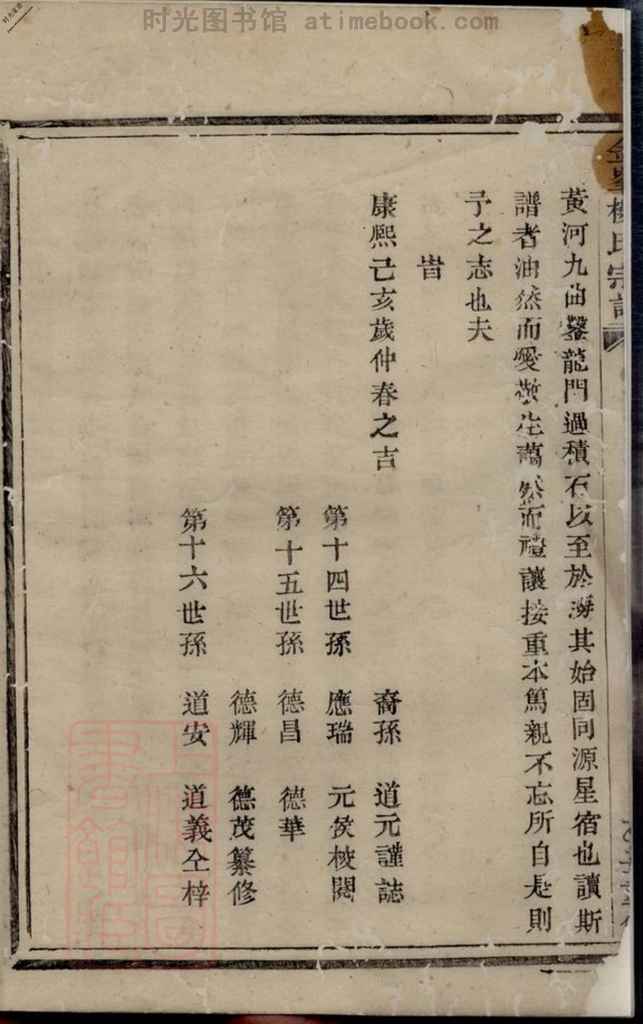 时光图书馆 atimebook.com
楊氏宗譜
黃河九曲鑿龍門過積石以至於海其始固同源星宿也讀斯
譜者油然而愛敬生藹然而禮讓接重本篤親不忘所自是則
予之志也夫
旹
康熙己亥歲仲春之吉
裔孫 道元謹誌
第十四世孫 應瑞 元侯校閱
第十五世孫 德昌 德華
德輝 德茂纂修
第十六世孫 道安 道義仝梓